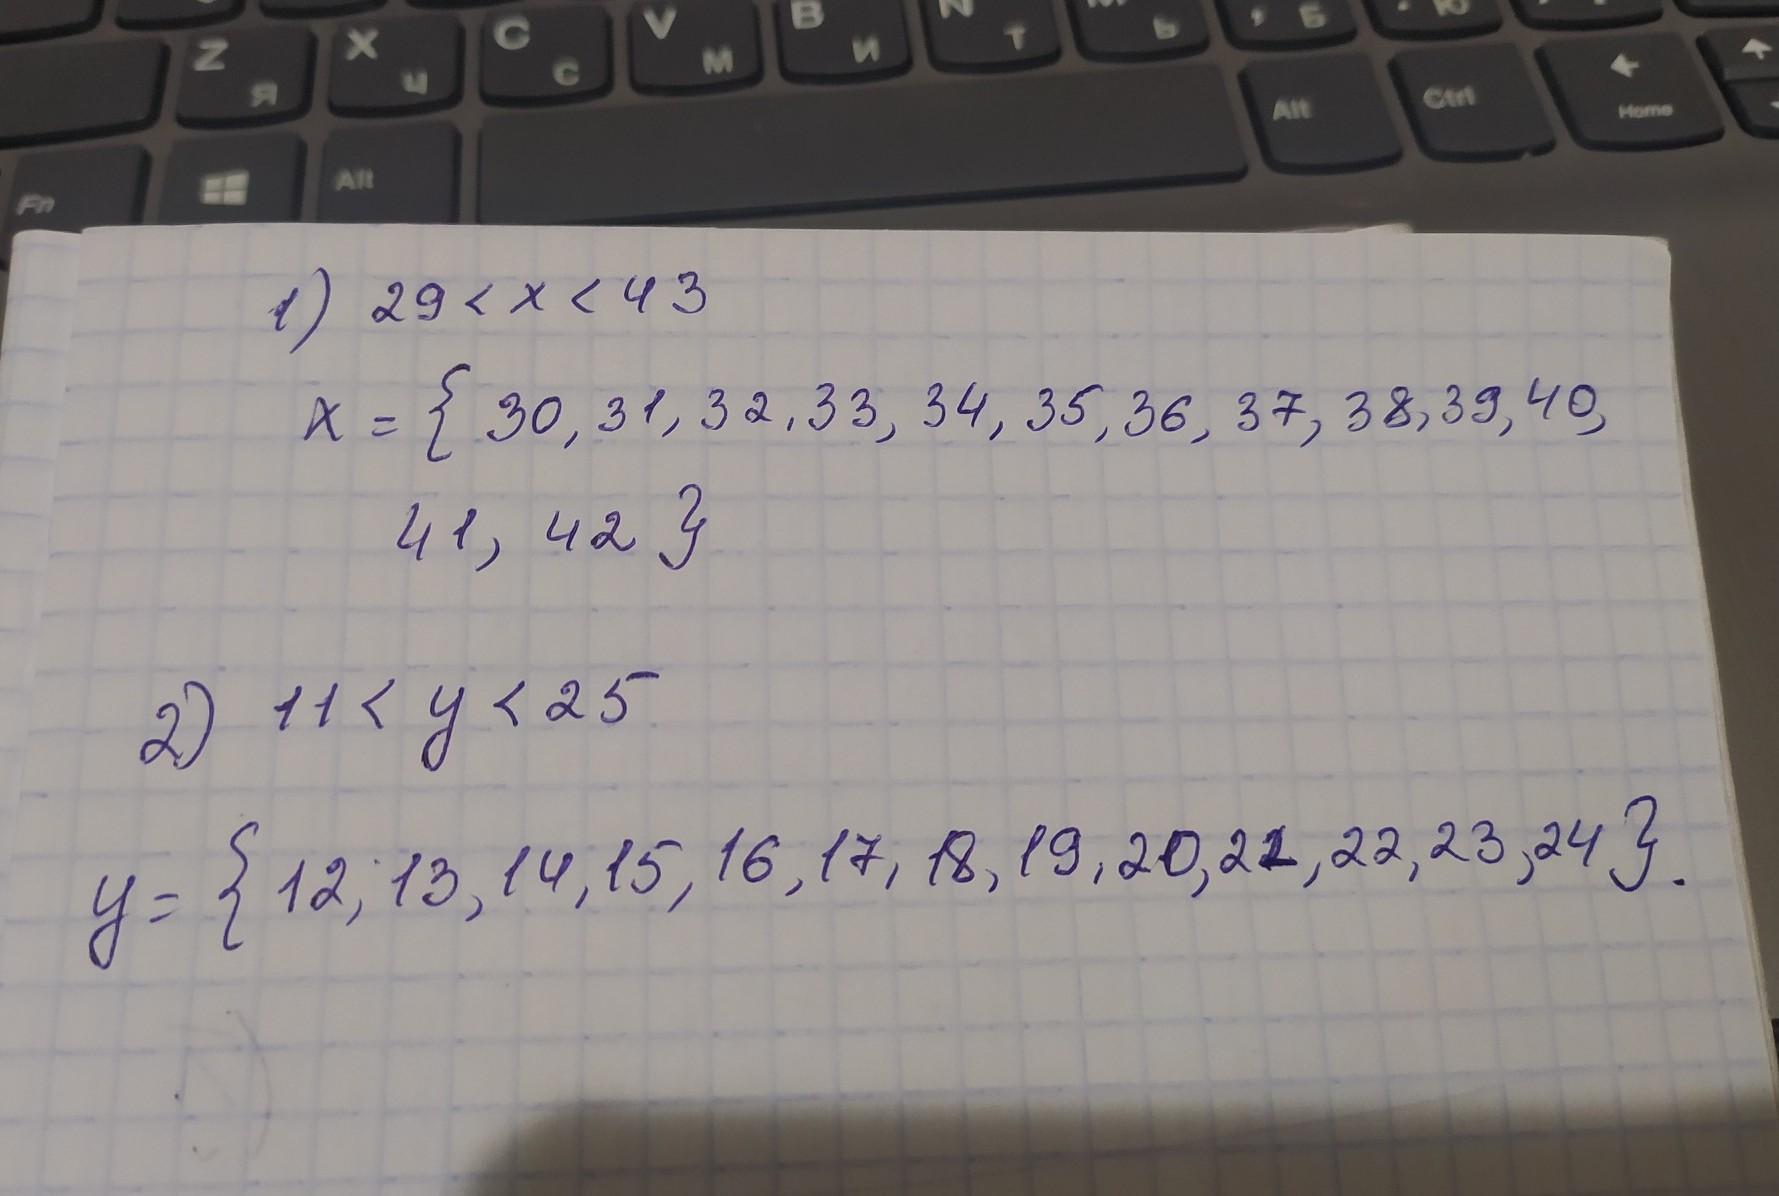 Z Я X Ч C С V М B И N Т Ь , Б . Ю
Alt Ctrl Home
Fn Alt
1) 29 < x < 43
x = { 30, 31, 32, 33, 34, 35, 36, 37, 38, 39, 40,
41, 42 }
2) 11 < y < 25
y = { 12, 13, 14, 15, 16, 17, 18, 19, 20, 21, 22, 23, 24 }.